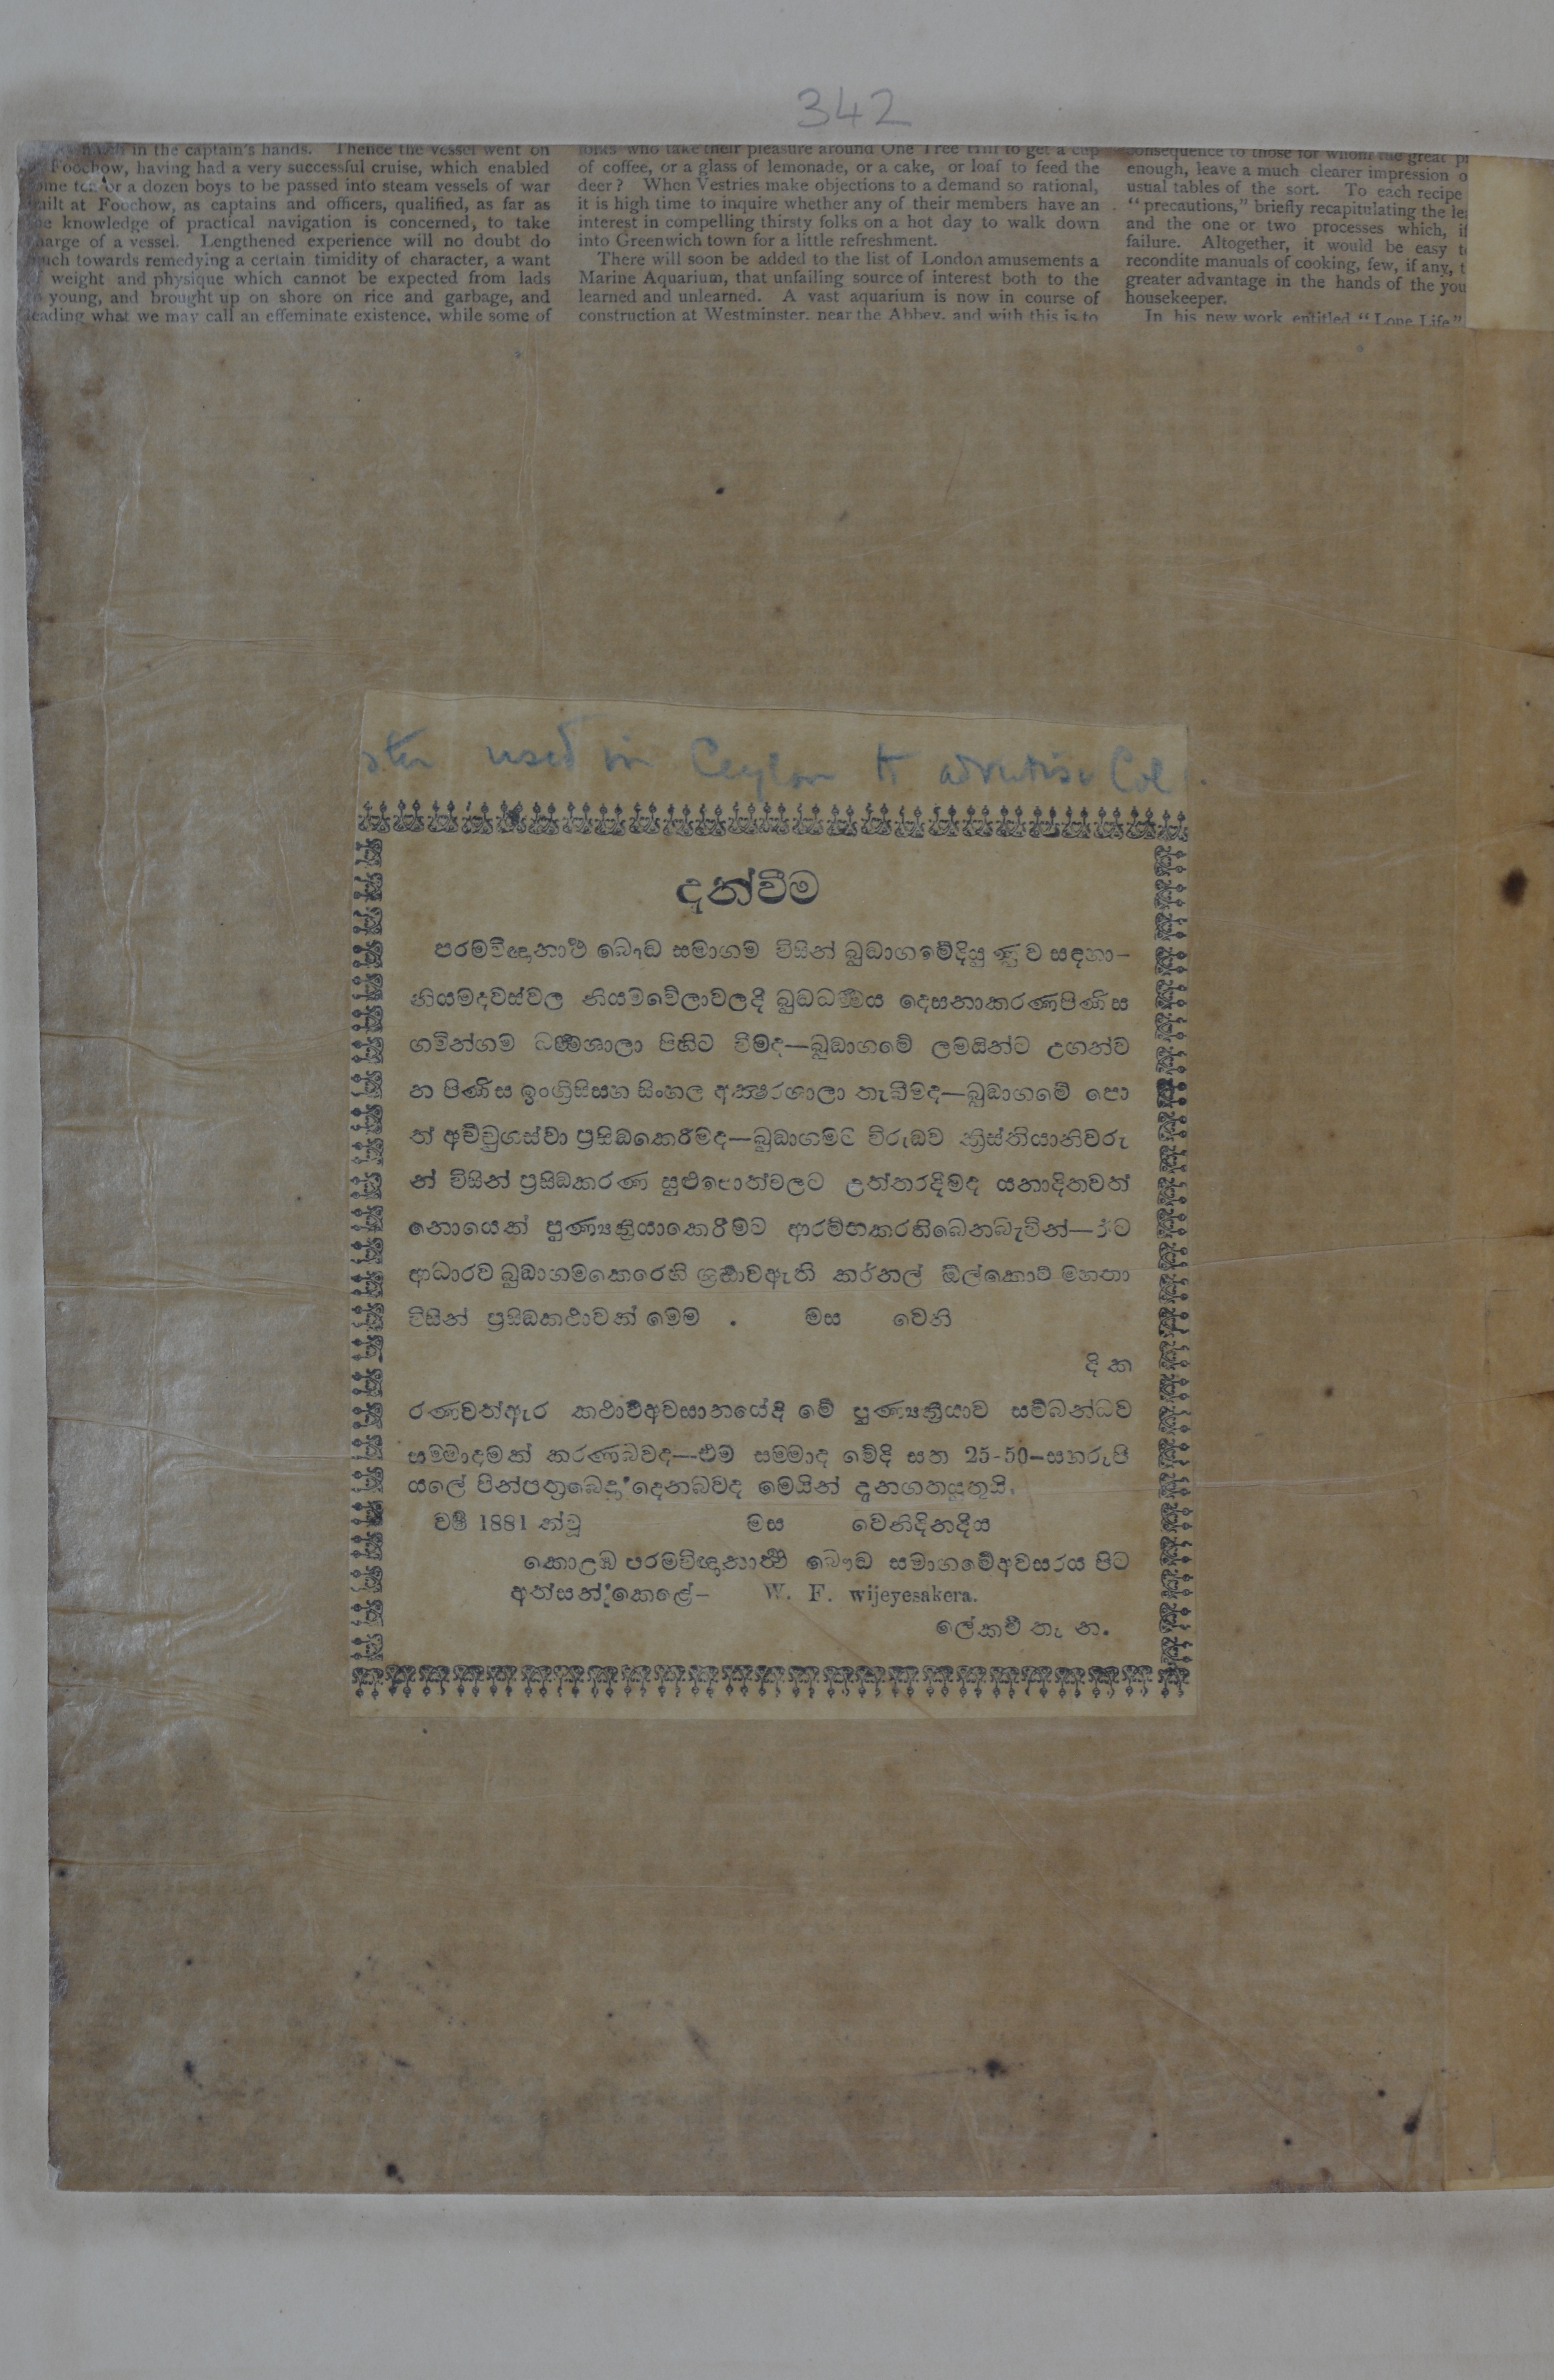 342
in the captain's hands. Thence the vessel went on
Foochow, having had a very successful cruise, which enabled
or a dozen boys to be passed into steam vessels of war
built at Foochow, as captains and officers, qualified, as far as
knowledge of practical navigation is concerned, to take
charge of a vessel. Lengthened experience will no doubt do
much towards remedying a certain timidity of character, a want
weight and physique which cannot be expected from lads
young, and brought up on shore on rice and garbage, and
leading what we may call an effeminate existence, while some of
who take their pleasure around One Tree Hill to get a cup
of coffee, or a glass of lemonade, or a cake, or loaf to feed the
deer? When Vestries make objections to a demand so rational,
it is high time to inquire whether any of their members have an
interest in compelling thirsty folks on a hot day to walk down
into Greenwich town for a little refreshment.
There will soon be added to the list of London amusements a
Marine Aquarium, that unfailing source of interest both to the
learned and unlearned. A vast aquarium is now in course of
construction at Westminster, near the Abbey, and with this is to
consequence to those for whom the great
enough, leave a much clearer impression
usual tables of the sort. To each recipe
"precautions," briefly recapitulating the
and the one or two processes which,
failure. Altogether, it would be easy
recondite manuals of cooking, few, if any,
greater advantage in the hands of the
housekeeper.
In his new work entitled "Lone Life"
ster used in Ceylon to advertise Col
දැන්වීම
පරමවිඥානාර්ථ බෞඬ සමාගම විසින් බුඬාගමේදියුණුව සඳහා-
නියමදවස්වල නියමවේලාවලදී බුඬධර්මය දෙසනාකරණපිණිස
ගමින්ගම ධර්මශාලා පිහිට වීමද—බුඬාගමේ ලමයින්ට උගන්ව
න පිණිස ඉංග්‍රීසිසහ සිංහල අක්ෂරශාලා තැබීමද—බුඬාගමේ පො
ත් අච්චුගස්වා ප්‍රසිඬකෙරීමද—බුඬාගමට විරුඬව ක්‍රිස්තියානිවරු
න් විසින් ප්‍රසිඬකරණ සුළුපොත්වලට උත්තරදීමද යනාදිතවත්
නොයෙක් පුණ්‍යක්‍රියාකෙරීමට ආරම්භකරතිබෙනබැවින්—ඊට
ආධාරව බුඬාගමකෙරෙහි ශ්‍රඬාවඇති කර්නල් ඕල්කොට් මහතා
විසින් ප්‍රසිඬකථාවක් මෙම . මස වෙනි
දි ක
රණවත්ඇර කථාවේඅවසානයේදී මේ පුණ්‍යක්‍රියාව සම්බන්ධව
සම්මාදමක් කරණබවද—එම සම්මාද මේදි සත 25-50-සහරුපි
යලේ පින්පත්‍රබෙදාදෙනබවද මෙයින් දැනගතයුතුයි.
වර්ෂ 1881 ක්වූ මස වෙනිදිනදීය
කොළඹ පරමවිඥානාර්ත්ථ බෞඬ සමාගමේඅවසරය පිට
අත්සන් කෙළේ- W. F. wijeyesakera.
ලේකම් තැ න.